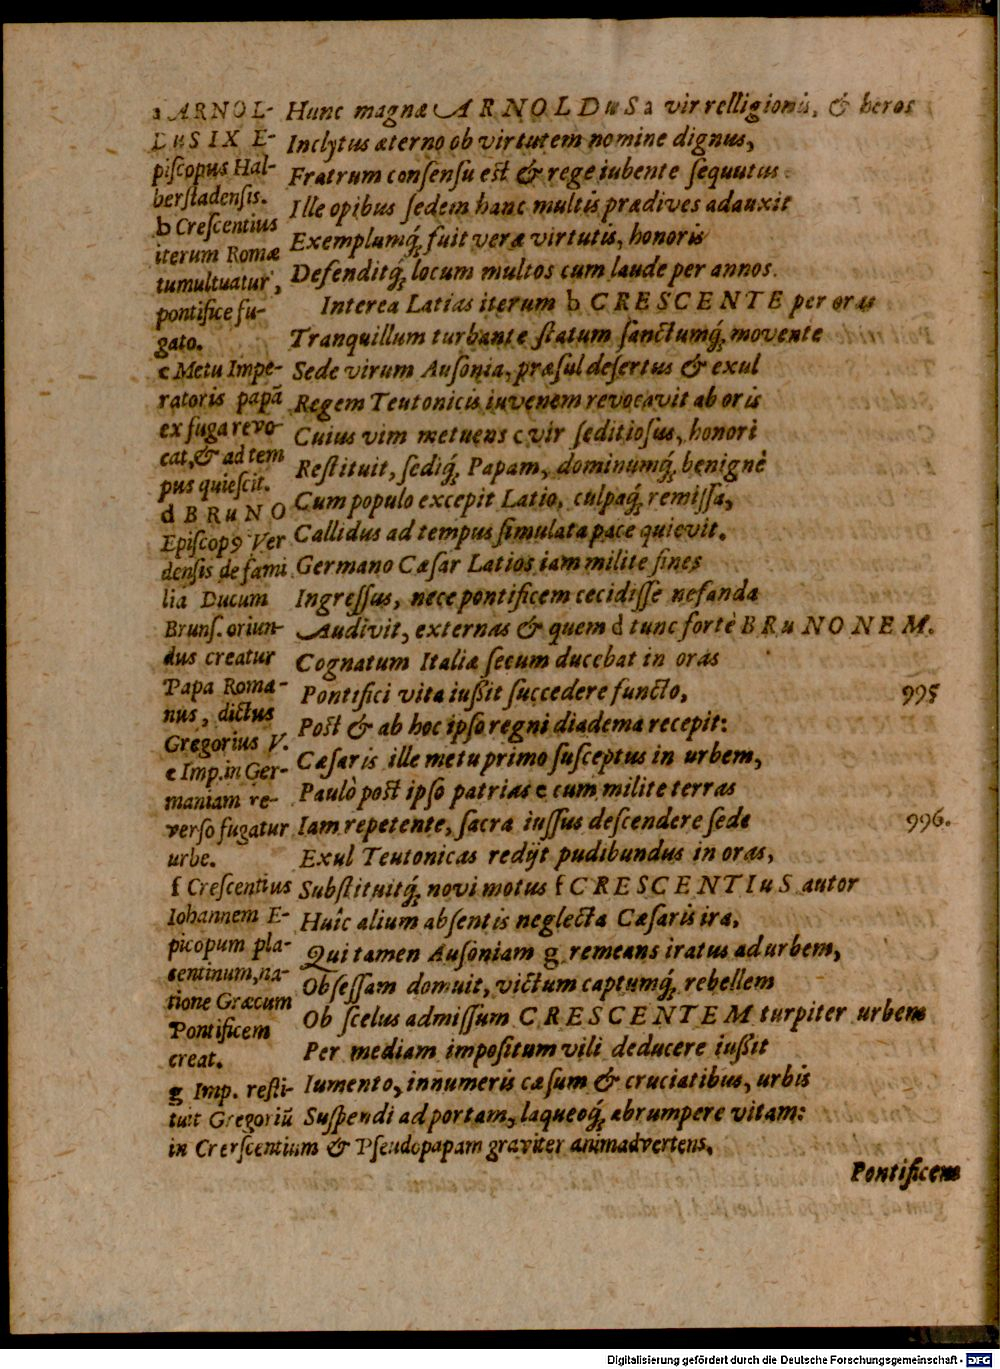 Hunc magnæ ARNOLDuS a vir relligionis, & heros
Inclytus æterno ob virtutem nomine dignus,
Fratrum consensu est & rege iubente sequutus
Ille opibus sedem hanc multis prædives adauxit
Exemplumq́; fuit veræ virtutis, honoris
Defenditq́; locum multos cum laude per annos.
Interea Latias iterum b CRESCENTE per oras
Tranquillum turbante statum sanctumq́; movente
Sede virum Ausonia, præsul desertus & exul
Regem Teutonicis iuvenem revocavit ab oris
Cuius vim metuens c vir seditiosus, honori
Restituit, sediq́; Papam, dominumq́; benignè
Cum populo excepit Latio, culpaq́; remissa,
Callidus ad tempus simulata pace quievit.
Germano Cæsar Latios iam milite fines
Ingressus, nece pontificem cecidisse nefanda
Audivit, externas & quem d tunc fortè BRuNONEM.
Cognatum Italiæ secum ducebat in oras
Pontifici vita iußit succedere functo,
995
Post & ab hoc ipso regni diadema recepit:
Cæsaris ille metu primo susceptus in urbem,
Paulò post ipso patrias e cum milite terras
Iam repetente, sacra iussus descendere sede
996.
Exul Teutonicas redijt pudibundus in oras,
Substituitq́; novi motus f CRESCENTIuS autor
Huic alium absentis neglecta Cæsaris ira,
Qui tamen Ausoniam g remeans iratus ad urbem,
Obsessam domuit, victum captumq́; rebellem
Ob scelus admissum CRESCENTEM turpiter urbem
Per mediam impositum vili deducere iußit
Iumento, innumeris cæsum & cruciatibus, urbis
Suspendi ad portam, laqueoq́; abrumpere vitam:
a ARNOL-
DuS IX E-
piscopus Hal-
berstadensis.
b Crescentius
iterum Romæ
tumultuatur,
pontifice fu-
gato.
c Metu Impe-
ratoris papã
ex fuga revo-
cat, & ad tem
pus quiescit.
d BRuNO
Episcop9 Ver
densis de fami
lia Ducum
Bruns. oriun-
dus creatur
Papa Roma-
nus, dictus
Gregorius V.
e Imp. in Ger-
maniam re-
verso fugatur
urbe.
f Crescentius
Iohannem E-
picopum pla-
centinum, na-
tione Græcum
Pontificem
creat.
g Imp. resti-
tuit Gregoriũ
in Crerscentium & Pseudopapam graviter animadvertens.
Pontificem
Digitalisierung gefördert durch die Deutsche Forschungsgemeinschaft - DFG